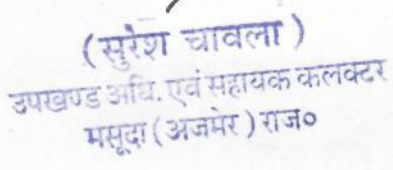 (सुरेश चावला)
उपखण्ड अधि. एवं सहायक कलक्टर
मसूदा (अजमेर) राज०